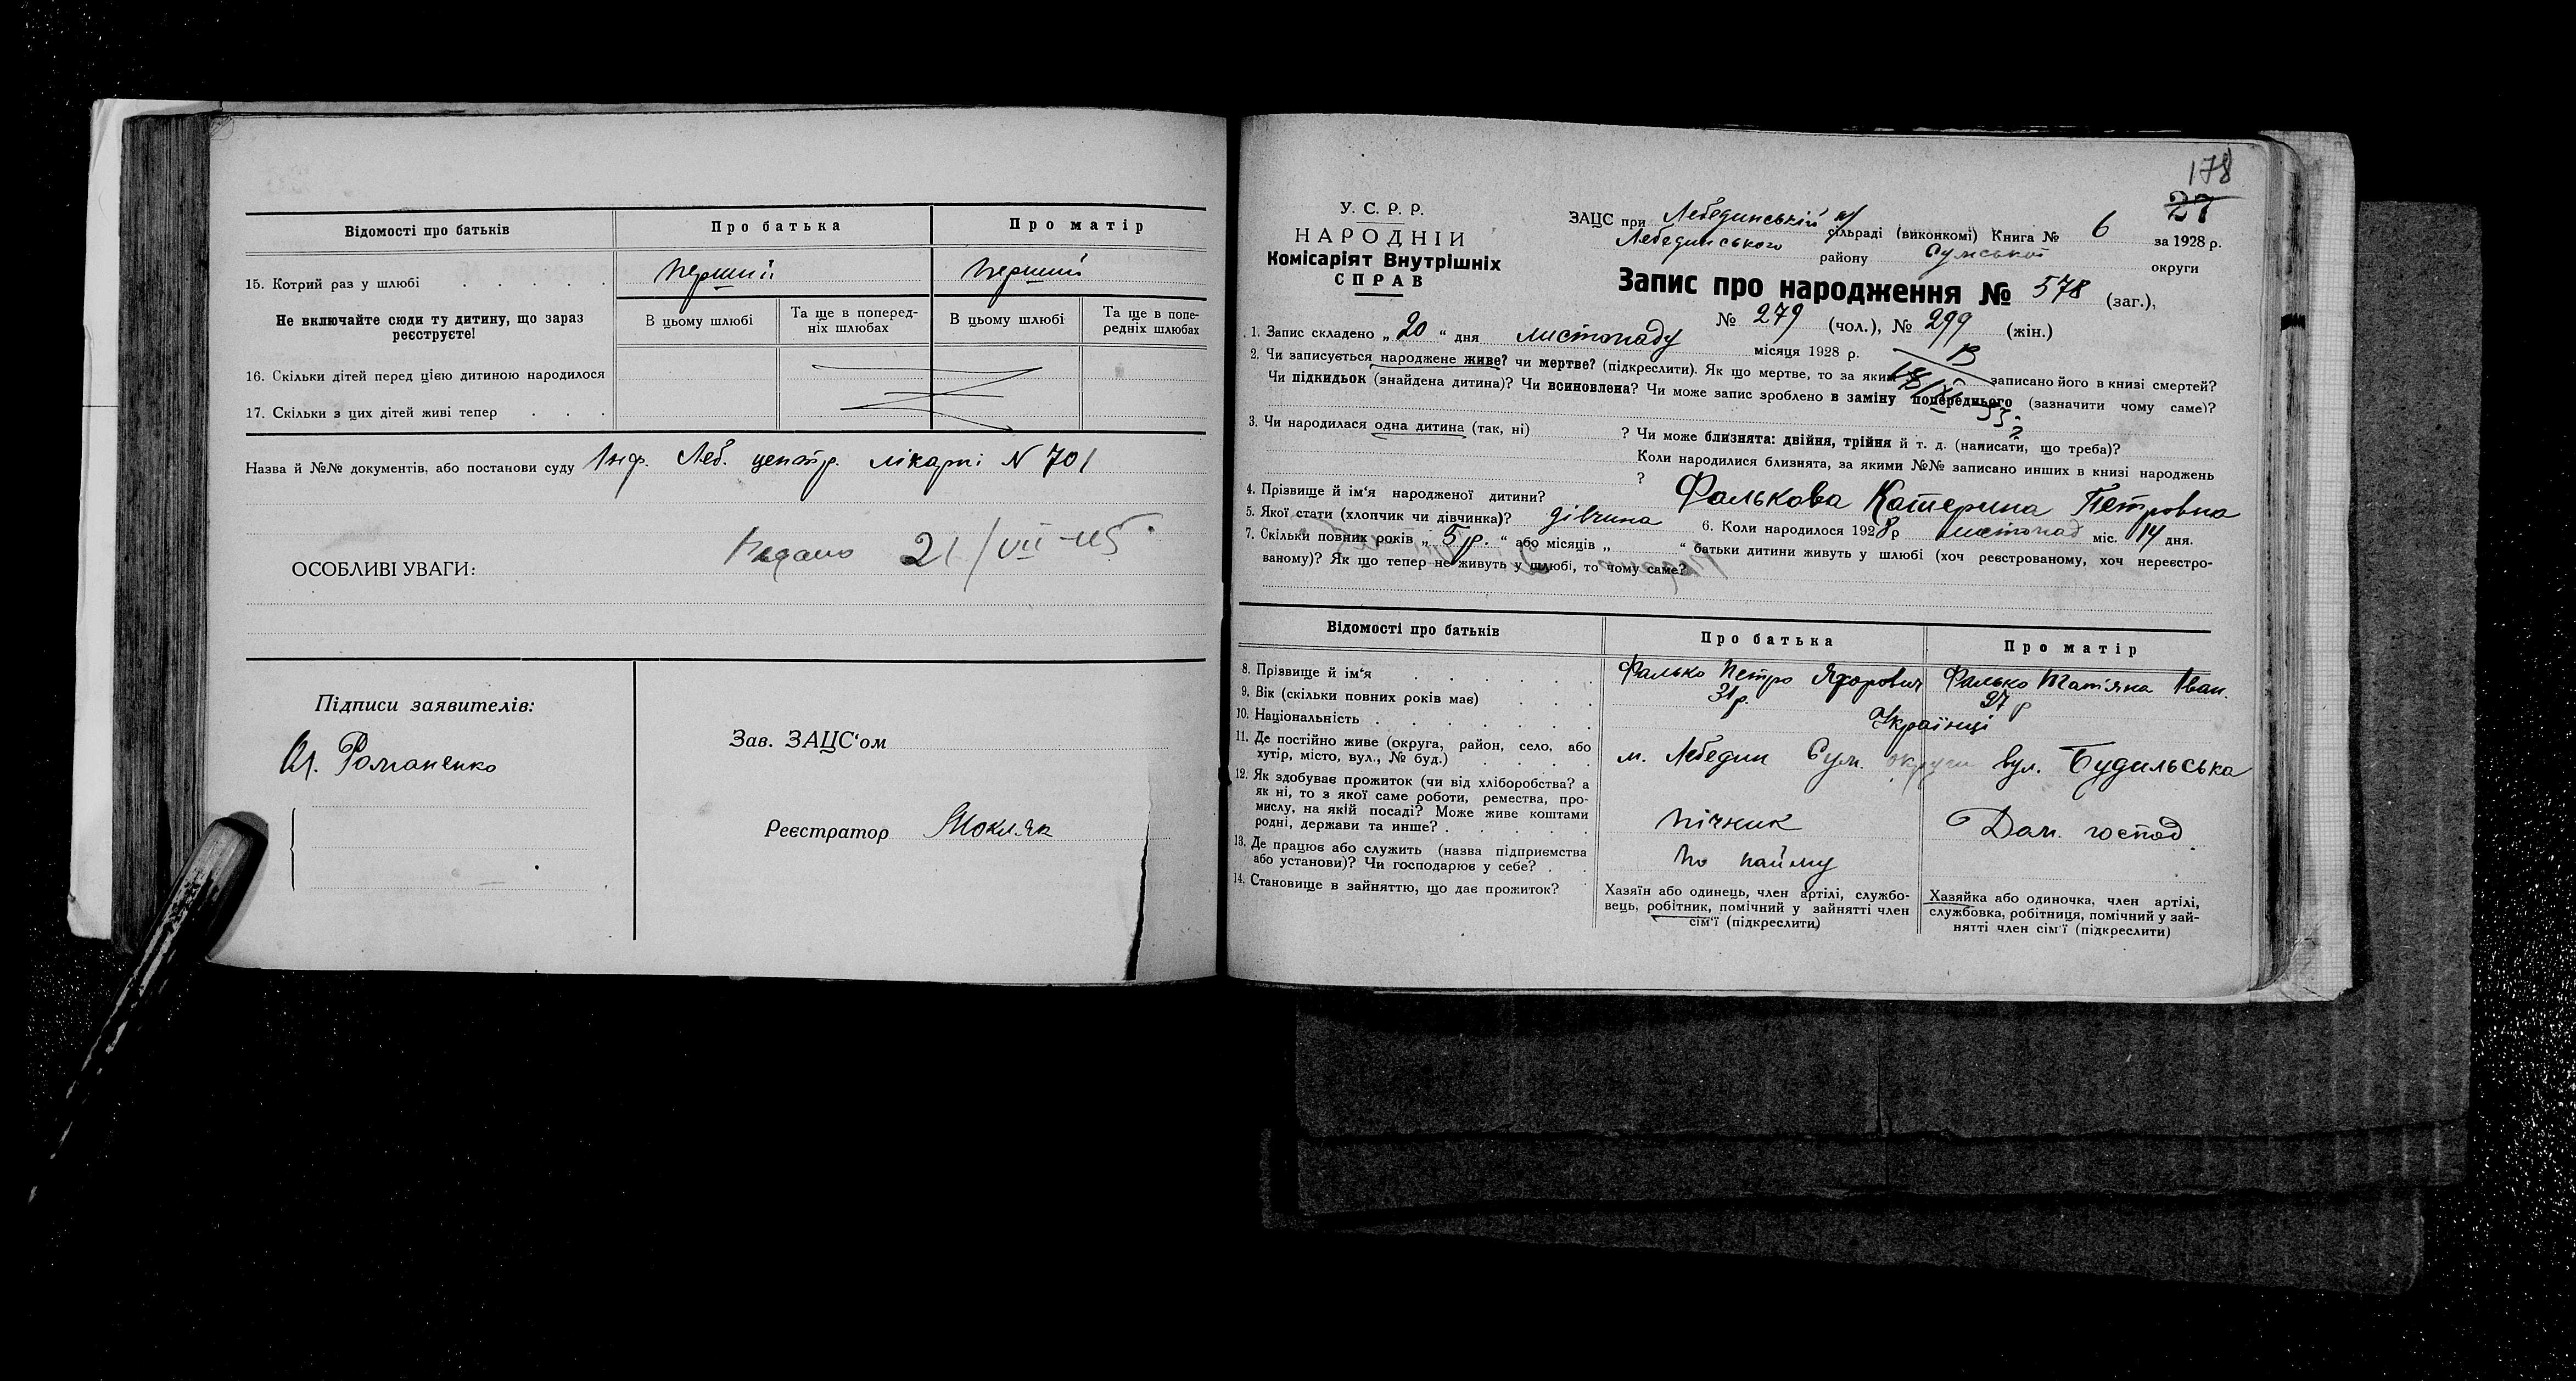 Відомості про батьків Про батька Про матір
15. Котрий раз у шлюбі . . . . . перший перший
Не включайте сюди ту дитину, що зараз реєструєте!
В цьому шлюбі Та ще в поперед-ніх шлюбах В цьому шлюбі Та ще в попе-редніх шлюбах
16. Скільки дітей перед цією дитиною народилося
17. Скільки з цих дітей живі тепер . . .
Назва й №№ документів, або постанови суду Інф. Леб. центр. лікарні N 701
Видано 21/VII-45
ОСОБЛИВІ УВАГИ:
Підписи заявителів:
Романенко
Зав. ЗАЦС'ом
Реєстратор
178
27
У. С. Р. Р.
НАРОДНІЙ
Комісаріят Внутрішніх
СПРАВ
ЗАЦС при Лебединській сільраді (виконкомі) Книга № 6 за 1928 р.
Лебединського району Сумської округи
Запис про народження № 578 (заг.),
№ 279 (чол.), № 299 (жін.)
1. Запис складено „20“ дня листопаду місяця 1928 р.
2. Чи записується народжене живе? чи мертве? (підкреслити). Як що мертве, то за яким записано його в книзі смертей?
Чи підкидьок (знайдена дитина)? Чи всиновлена? Чи може запис зроблено в заміну попереднього (зазначити чому саме)?
?
3. Чи народилася одна дитина (так, ні) ? Чи може близнята: двійня, трійня й т. д. (написати, що треба)?
Коли народилися близнята, за якими №№ записано инших в книзі народжень
?
4. Прізвище й ім'я народженої дитини? Фалькова Катерина Петровна
5. Якої стати (хлопчик чи дівчинка)? дівчина 6. Коли народилося 1928 р листопад міс. 14 дня.
7. Скільки повних років „5 р.“ або місяців „ “ батьки дитини живуть у шлюбі (хоч реєстрованому, хоч нереєстро-
ваному)? Як що тепер не живуть у шлюбі, то чому саме?
Відомості про батьків Про батька Про матір
8. Прізвище й ім'я . . . . . . Фалько Петро Фалько Татіяна Іван.
9. Вік (скільки повних років має) . . . 31 р. 27 р
10. Національність . . . . . . . Українці
11. Де постійно живе (округа, район, село, або
хутір, місто, вул., № буд.) . . . . м. Лебедин Сум. округи вул. Будильська
12. Як здобуває прожиток (чи від хліборобства? а
як ні, то з якої саме роботи, ремества, про-
мислу, на якій посаді? Може живе коштами
родні, держави та инше? . . . . . пічник Дом. господ.
13. Де працює або служить (назва підприємства
або установи)? Чи господарює у себе? . . по найму
14. Становище в зайняттю, що дає прожиток?
Хазяїн або одинець, член артілі, службо-
вець, робітник, помічний у зайнятті член
сім'ї (підкреслити)
Хазяйка або одиночка, член артілі,
службовка, робітниця, помічний у зай-
нятті член сім'ї (підкреслити)